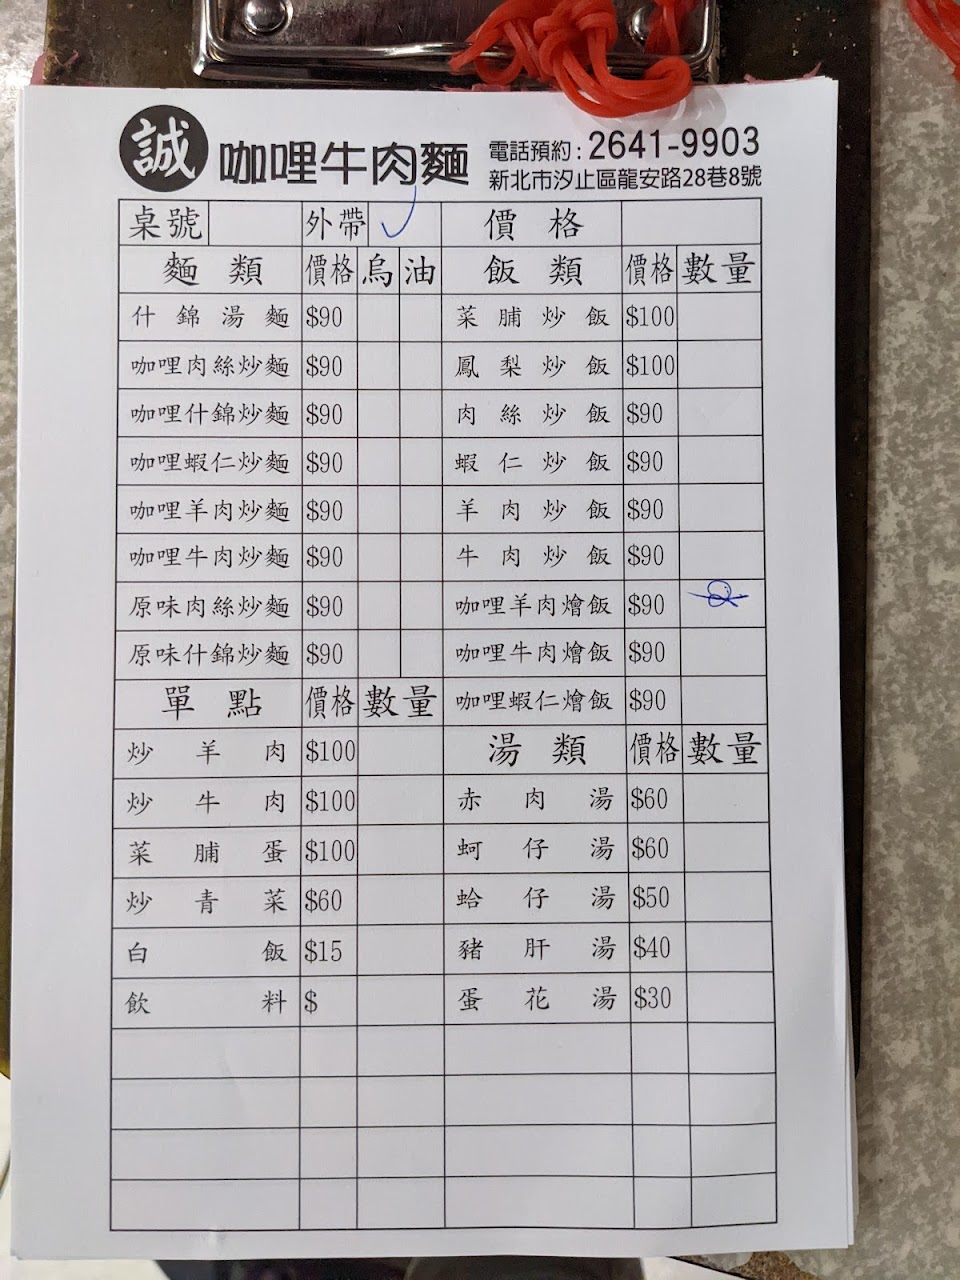 誠 咖哩牛肉麵 電話預約:2641-9903
新北市汐止區龍安路28巷8號
桌號 外帶 ✓ 價格
麵類 價格 烏 油 飯類 價格 數量
什錦湯麵 $90 菜脯炒飯 $100
咖哩肉絲炒麵 $90 鳳梨炒飯 $100
咖哩什錦炒麵 $90 肉絲炒飯 $90
咖哩蝦仁炒麵 $90 蝦仁炒飯 $90
咖哩羊肉炒麵 $90 羊肉炒飯 $90
咖哩牛肉炒麵 $90 牛肉炒飯 $90
原味肉絲炒麵 $90 咖哩羊肉燴飯 $90
原味什錦炒麵 $90 咖哩牛肉燴飯 $90
單點 價格 數量 咖哩蝦仁燴飯 $90
炒羊肉 $100 湯類 價格 數量
炒牛肉 $100 赤肉湯 $60
菜脯蛋 $100 蚵仔湯 $60
炒青菜 $60 蛤仔湯 $50
白飯 $15 豬肝湯 $40
飲料 $ 蛋花湯 $30